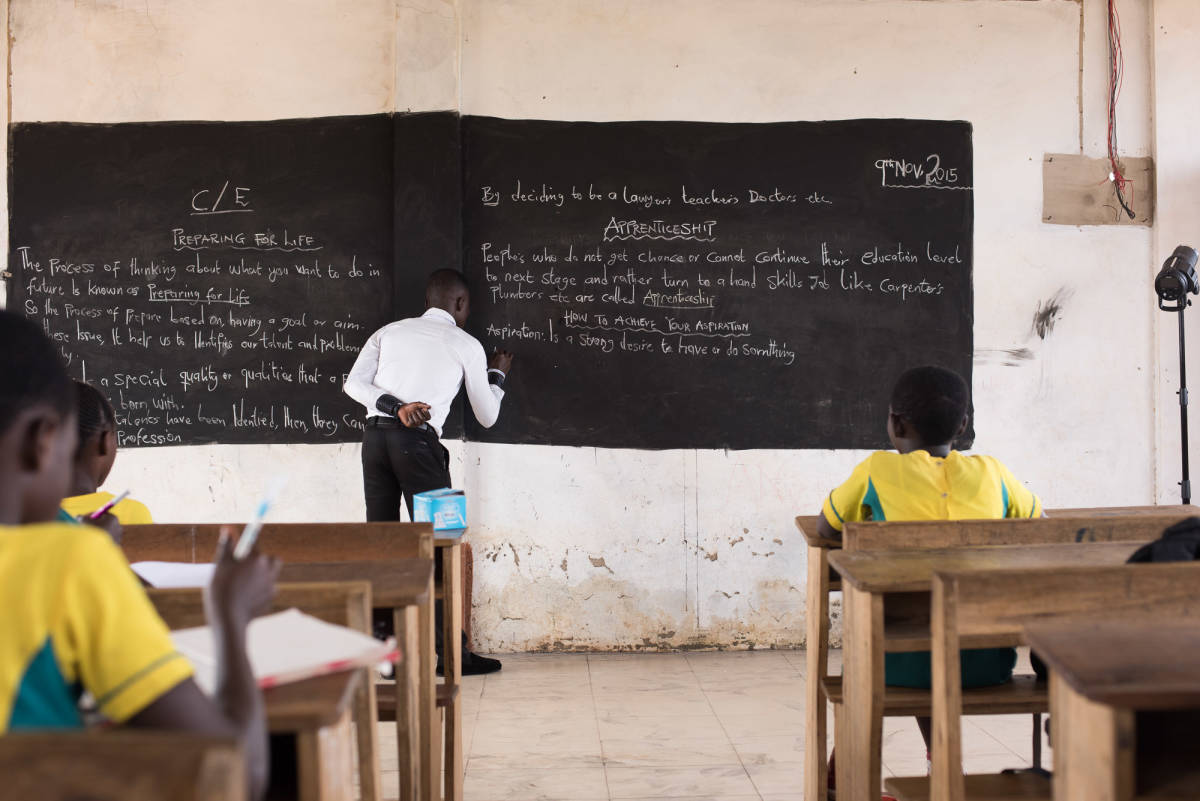 C/E
PREPARING FOR LIFE
The Process of thinking about what you want to do in
future is known as Preparing for life
So the Process of Prepare based on, having a goal or aim.
these Issue, It help us to Identifies our talent and problem
Is a special quality or qualities that a
born, with.
talents have been Identied, then, they Can
Profession
9th Nov, 2015
By deciding to be a lawyers teachers Doctors etc
APPRENTICESHIP
People's who do not get chance or Cannot Continue their education level
to next stage and rather turn to a hand Skills Job Like Carpenter's
Plumbers etc are called Apprenticeship
HOW TO ACHIEVE YOUR ASPIRATION
Aspiration: Is a strong desire to have or do Something